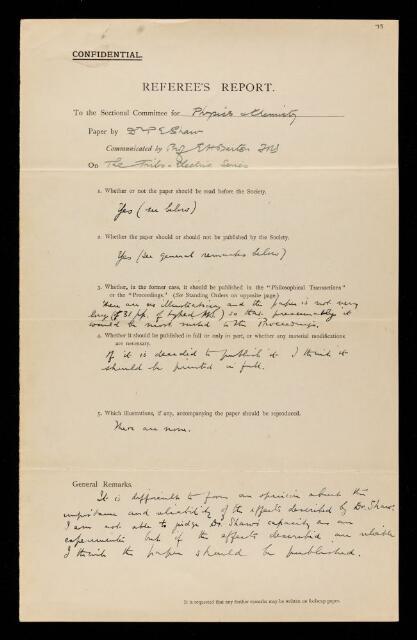 75
CONFIDENTIAL.
REFEREE'S REPORT.
To the Sectional Committee for Physics & Chemistry
Paper by Dr P E Shaw
Communicated by Prof E H Barton FRS
On The Tribo-Electric Series
1. Whether or not the paper should be read before the Society.
Yes (see below)
2. Whether the paper should or should not be published by the Society.
Yes (see general remarks below)
3. Whether, in the former case, it should be published in the "Philosophical Transactions"
or the "Proceedings." (See Standing Orders on opposite page.)
There are no illustrations, and the paper is not very
long (31 pp. of typed MS.) so that presumably it
would be most suited to the Proceedings.
4. Whether it should be published in full or only in part, or whether any material modifications
are necessary.
If it is decided to publish it I think it
should be printed in full.
5. Which illustrations, if any, accompanying the paper should be reproduced.
There are none.
General Remarks.
It is difficult to form an opinion about the
importance and reliability of the effects described by Dr. Shaw.
I am not able to judge Dr. Shaw's capacity as an
experimenter but if the effects described are reliable
I think the paper should be published.
It is requested that any further remarks may be written on foolscap paper.